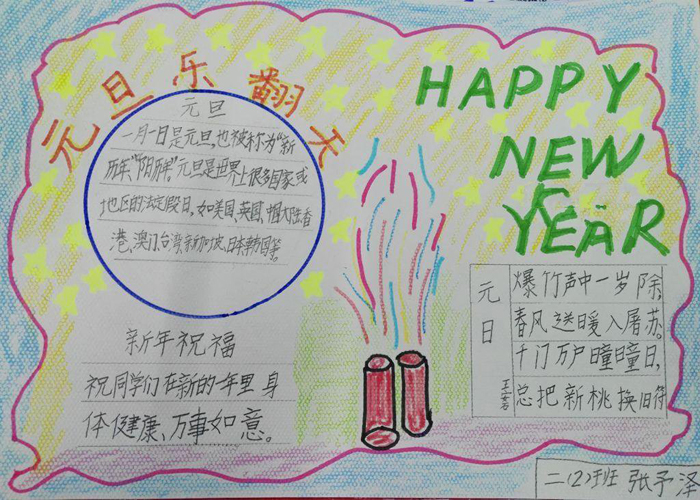 元旦乐翻天
HAPPY
NEW
YEAR
元旦
一月一日是元旦,也被称为“新
历年”“阳历年”。元旦是世界上很多国家或
地区的法定假日,如美国、英国、中国大陆香
港、澳门、台湾、新加坡、日本、韩国等。
新年祝福
祝同学们在新的一年里身
体健康、万事如意。
元日
王安石
爆竹声中一岁除,
春风送暖入屠苏。
千门万户曈曈日,
总把新桃换旧符
二(2)班 张予泽